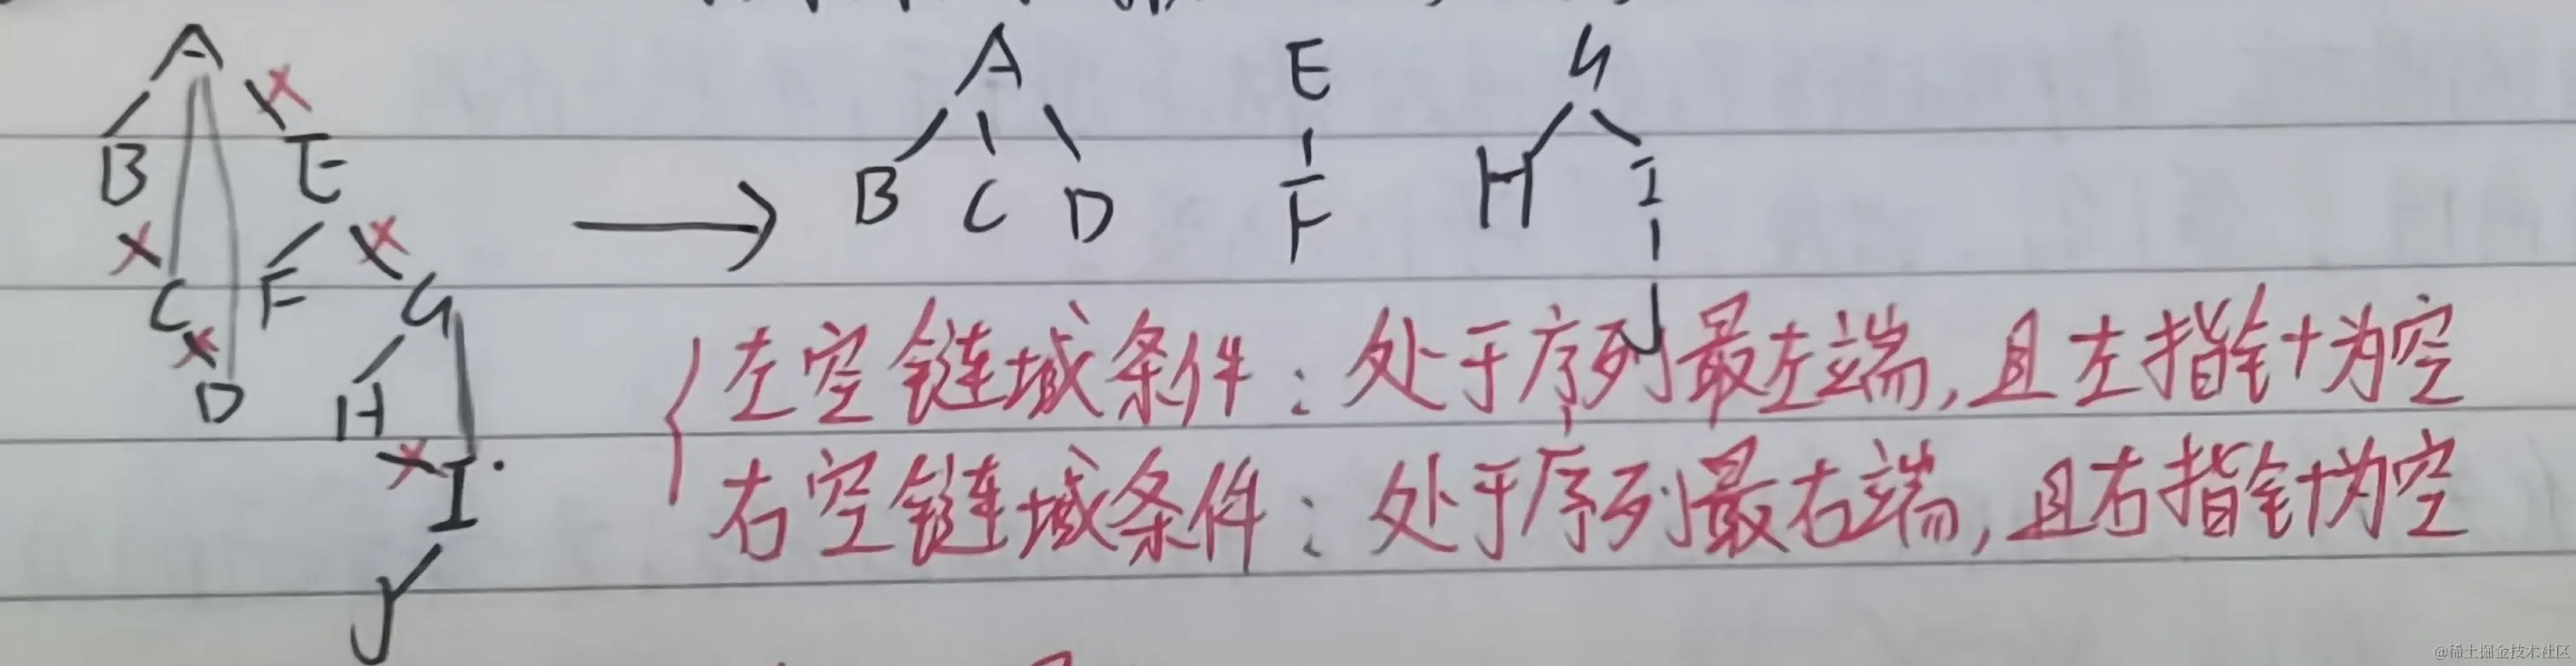 A A E G
B E B C D F H I
C F G J
D H I
J
左空链域条件：处于序列最左端,且左指针为空
右空链域条件：处于序列最右端,且右指针为空
@稀土掘金技术社区